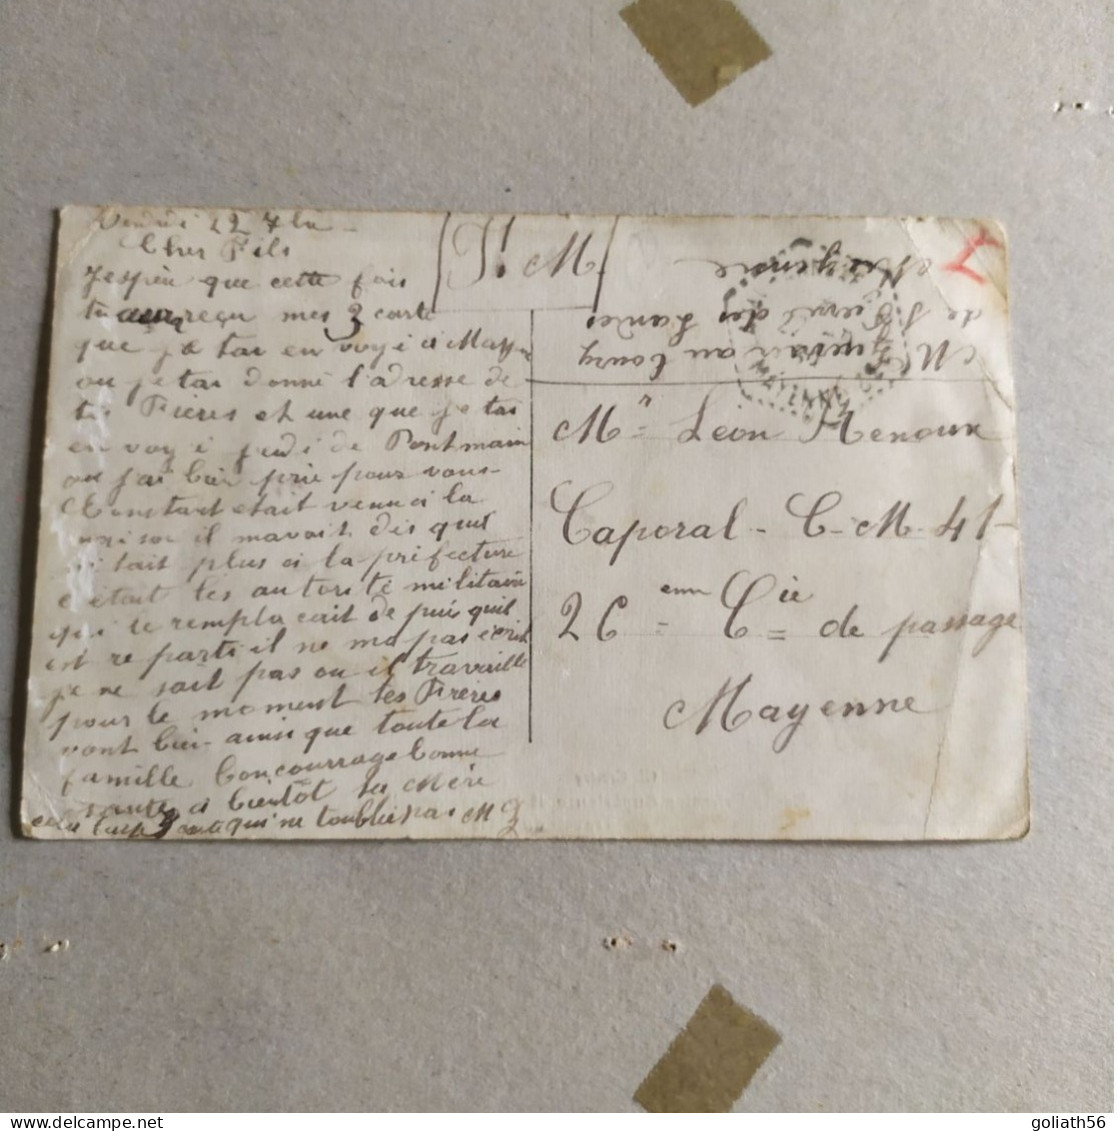 Vendredi 22 7bre
Cher Fils
J'espèr que cette fois
tu aura reçu mes 3 carte
que je tai en voyé à Mayenne
ou je tai donné l'adresse de
tes Frères et une que je tai
en voyé jeudi de Pontmain
ou j'ai bien prié pour vous-
Constant était venu à la
maison il mavait dis quil
n'était plus à la préfecture
c'était les autorité militaire
qui le remplacait de puis quil
est re parti il ne ma pas écrit
je ne sait pas ou il travaille
pour le moment tes Frères
vont bien ainsi que toute la
famille boncourrage bonne
santé à bientôt ta Mère
qui ne toublie pas M
F. M.
M
au bourg
de des Landes
Mayenne
Mr = Léon Renoux
Caporal - C-M- 41-
26 emm = Cie = de passage
Mayenne
goliath56